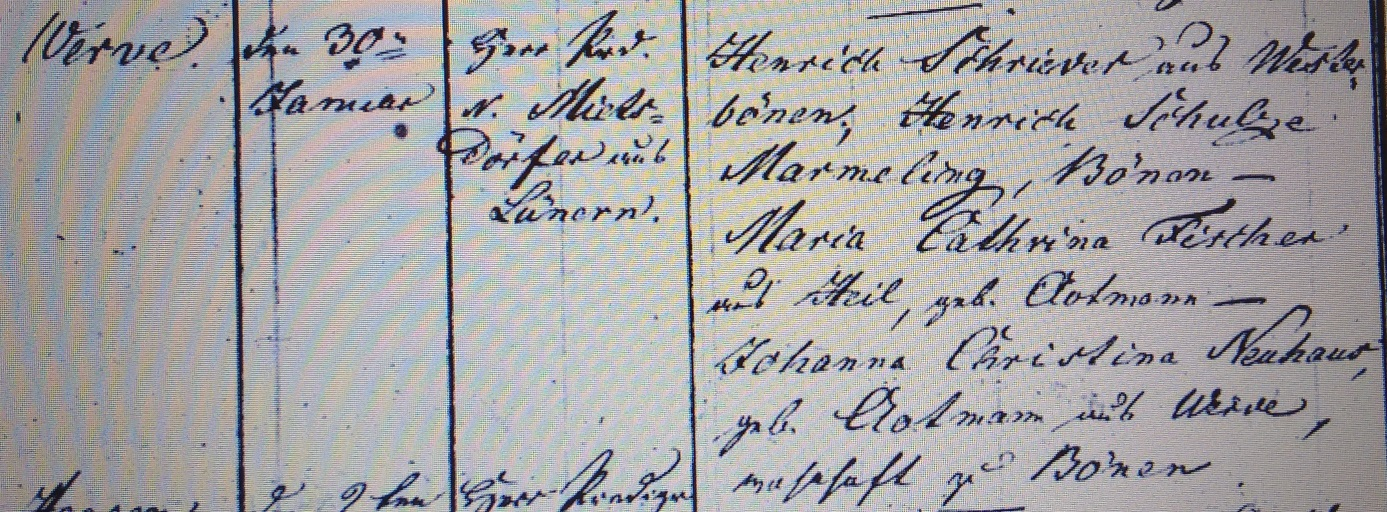 Werve.
den 30n
Januar
Herr Prd.
v. Miets=
Dörfer aus
Lünern.
Henrich Schriever aus Wester
bönen, Henrich Schulze
Marmeling, Bönen —
Maria Cathrina Fischer
aus Heil, geb. Rotmann —
Johanna Christina Neuhaus,
geb. Rotmann aus Werve,
wohnhaft zu Bönen.
d. 9ten
Herr Prediger